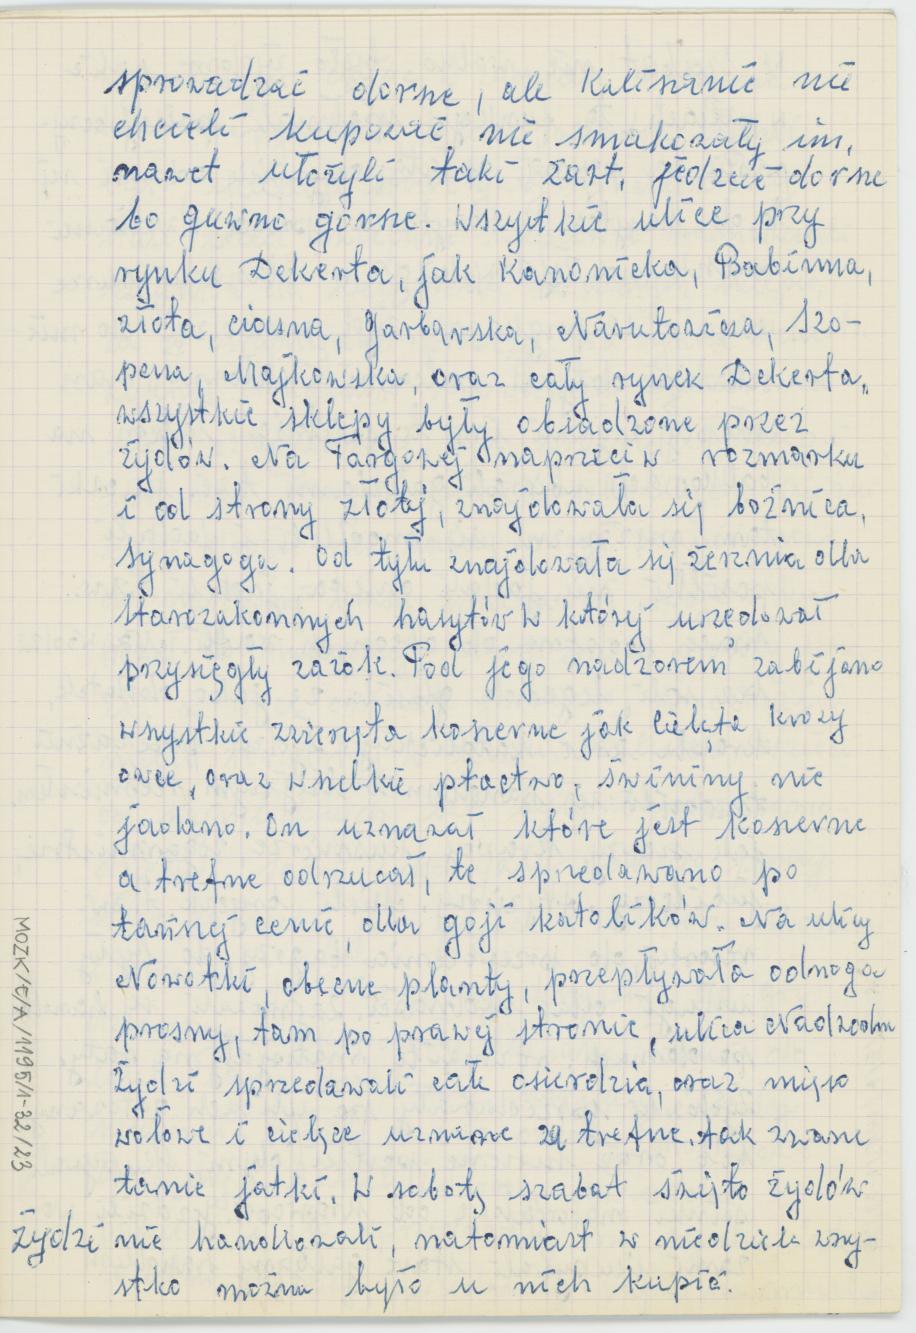 sprowadzać dorsze, ale Kaliszanie nie
chcieli kupować nie smakowały im,
nawet ułożyli taki żart, jedzcie dorsze
bo guwno gorsze. Wszystkie ulice przy
rynku Dekerta, jak Kanonicka, Babinna,
złota, ciasna, garbarska, Narutowicza, Szo-
pena, Majkowska, oraz cały rynek Dekerta,
wszystkie sklepy były obsadzone przez
żydów. Na Targowej naprzeciw rozmarku
i od strony złotej, znajdowała się bożnica,
synagoga. Od tyłu znajdowała się rzeznia dla
starozakonnych hasytów w której urzędował
przysięgły rzezok. Pod jego nadzorem zabijano
wszystkie zwierzęta koszerne jak cielęta krowy
owce, oraz wszelkie ptactwo, świniny nie
jadano. On uznawał które jest koszerne
a trefne odrzucał, te sprzedawano po
tańszej cenie, dla goji katolików. Na ulicy
Nowotki, obecne planty, przepływała odnoga
prosny, tam po prawej stronie, ulica Nadwodna
Żydzi sprzedawali całe osierdzia, oraz mięso
wołowe i cielęce uznane za trefne, tak zwane
tanie jatki. W sobotę szabat święto żydów
Żydzi nie handlowali, natomiast w niedziele wszy-
stko można było u nich kupić.
MOZK/E/A/1195/1-22/23